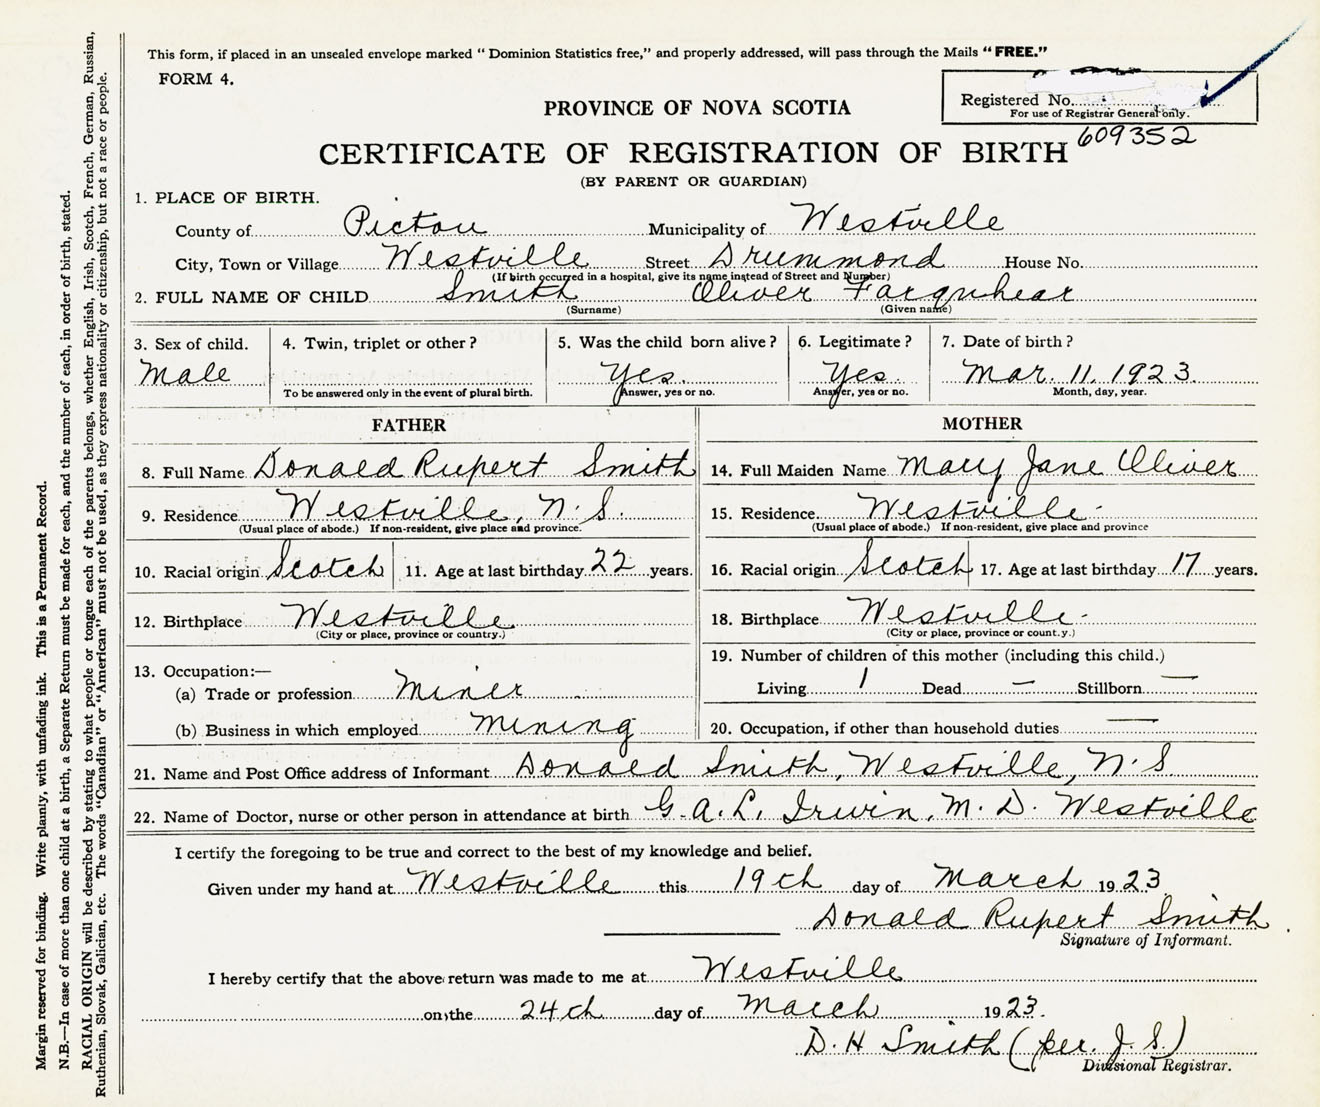 This form, if placed in an unsealed envelope marked “ Dominion Statistics free,” and properly addressed, will pass through the Mails “ FREE.”
FORM 4.
Registered No.
For use of Registrar General only.
609352
PROVINCE OF NOVA SCOTIA
CERTIFICATE OF REGISTRATION OF BIRTH
(BY PARENT OR GUARDIAN)
1. PLACE OF BIRTH.
County of Pictou Municipality of Westville
City, Town or Village Westville Street Drummond House No.
(If birth occurred in a hospital, give its name instead of Street and Number)
2. FULL NAME OF CHILD Smith Oliver Farquhear
(Surname) (Given name)
3. Sex of child. 4. Twin, triplet or other ? 5. Was the child born alive ? 6. Legitimate ? 7. Date of birth ?
Male Yes. Yes. Mar. 11. 1923.
To be answered only in the event of plural birth. Answer, yes or no. Answer, yes or no. Month, day, year.
FATHER MOTHER
8. Full Name Donald Rupert Smith 14. Full Maiden Name Mary Jane Oliver
9. Residence Westville, N.S. 15. Residence Westville
(Usual place of abode.) If non-resident, give place and province. (Usual place of abode.) If non-resident, give place and province
10. Racial origin Scotch 11. Age at last birthday 22 years. 16. Racial origin Scotch 17. Age at last birthday 17 years.
12. Birthplace Westville 18. Birthplace Westville
(City or place, province or country.) (City or place, province or count.y.)
13. Occupation:— 19. Number of children of this mother (including this child.)
(a) Trade or profession Miner Living 1 Dead — Stillborn —
(b) Business in which employed Mining 20. Occupation, if other than household duties —
21. Name and Post Office address of Informant Donald Smith, Westville, N.S
22. Name of Doctor, nurse or other person in attendance at birth G.A.L. Irwin, M.D. Westville
I certify the foregoing to be true and correct to the best of my knowledge and belief.
Given under my hand at Westville this 19th day of March 1923
Donald Rupert Smith
Signature of Informant.
I hereby certify that the above return was made to me at Westville
on the 24th day of March 1923.
D.H Smith (per. J.S.)
Divisional Registrar.
Margin reserved for binding. Write plainly, with unfading ink. This is a Permanent Record.
N.B.—In case of more than one child at a birth, a Separate Return must be made for each, and the number of each, in order of birth, stated.
RACIAL ORIGIN will be described by stating to what people or tongue each of the parents belongs, whether English, Irish, Scotch, French, German, Russian,
Ruthenian, Slovak, Galician, etc. The words “Canadian” or “American” must not be used, as they express nationality or citizenship, but not a race or people.